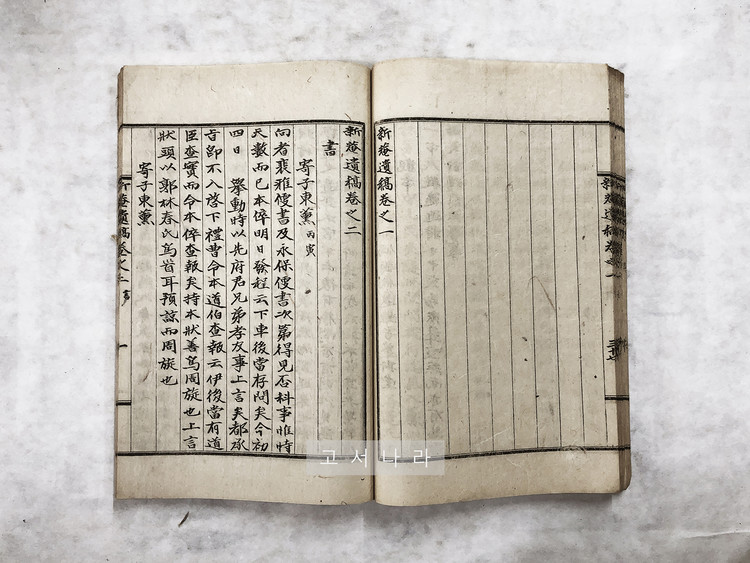 新菴遺稿卷之一
新菴遺稿卷之一
新菴遺稿卷之二
書
寄子東薰 丙寅
向者裵雅便書及永保便書次第得見否科事惟恃
天數而已本倅明日發程云下車後當存問矣今初
四日 擧動時以先府君兄弟孝友事上言矣都承
旨卽不入啓下禮曹令本道伯査報云伊後當有道
臣査實而令本倅査報矣持本狀善爲周旋也上言
狀頭以郭林春氏爲首耳預諒而周旋也
寄子東薰
新菴遺稿卷之二 書 一
고서나라